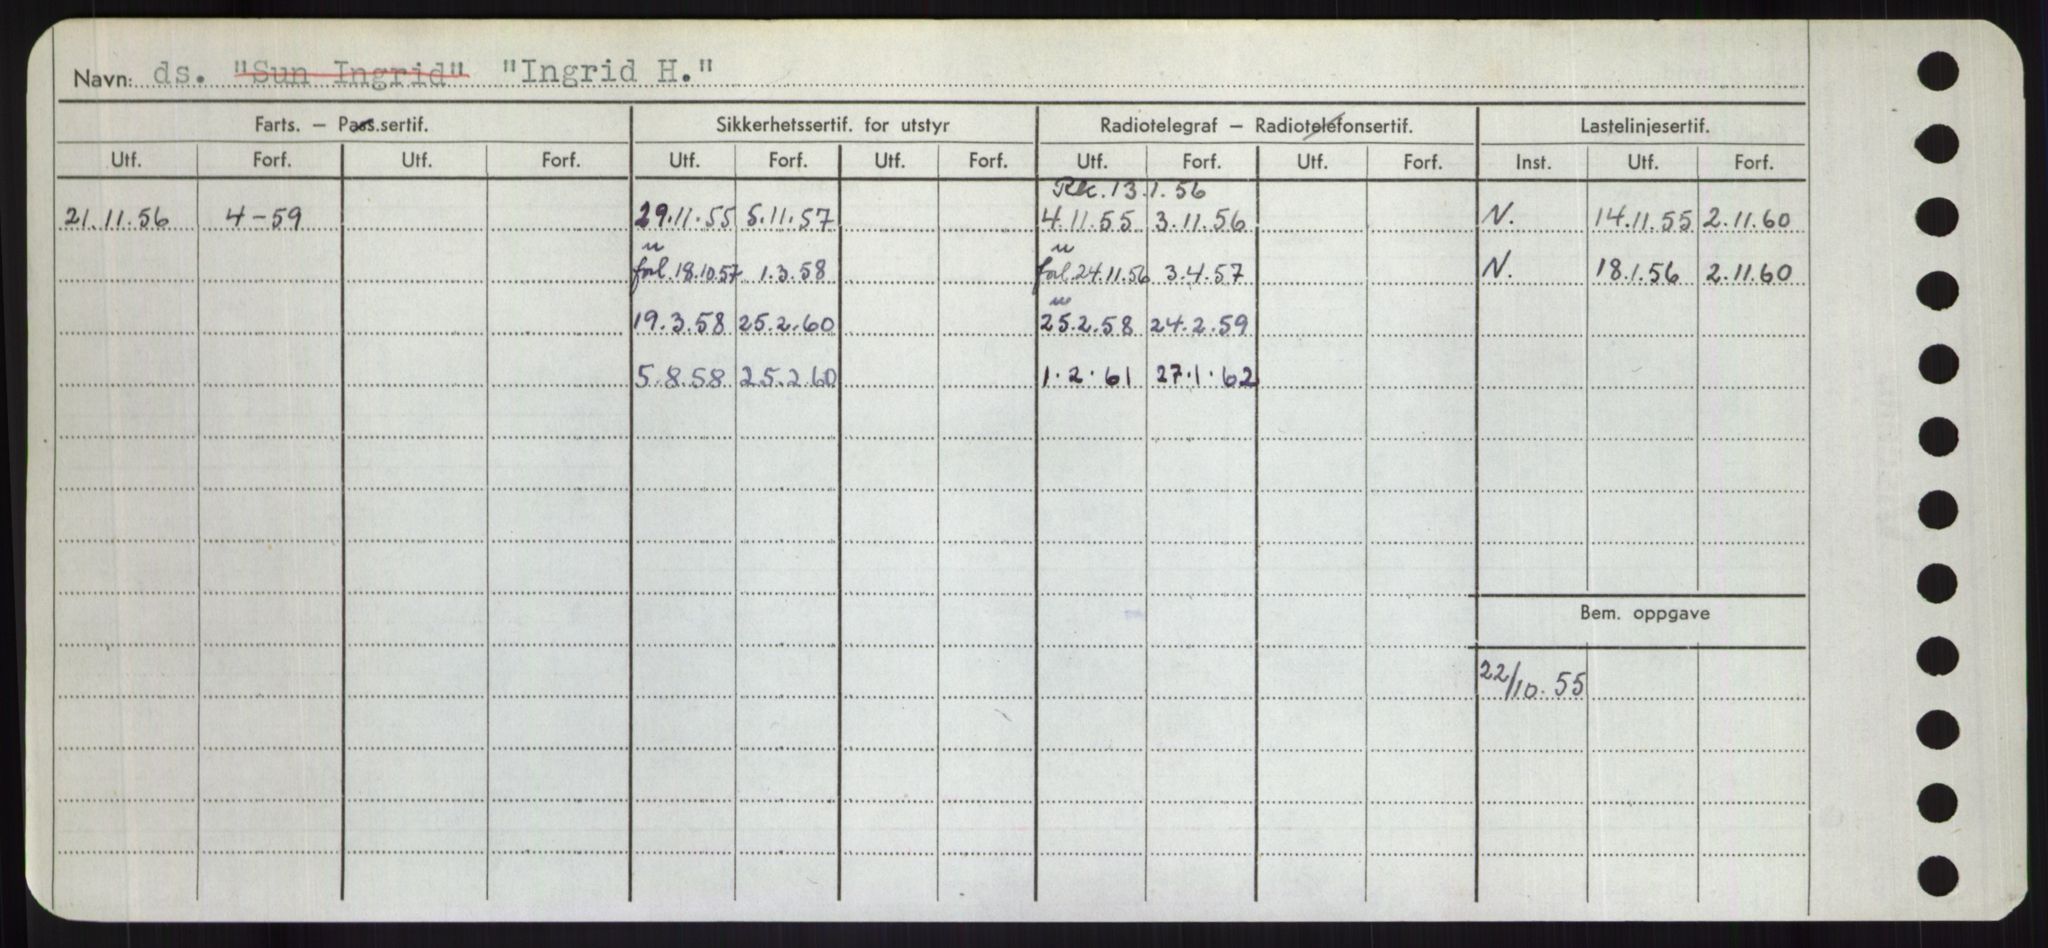 Navn: ds. "Sun Ingrid" "Ingrid H."
Farts. – Pass.sertif. Sikkerhetssertif. for utstyr Radiotelegraf – Radiotelefonsertif. Lastelinjesertif.
Utf. Forf. Utf. Forf. Utf. Forf. Utf. Forf. Utf. Forf. Utf. Forf. Inst. Utf. Forf.
Rk. 13.1.56
21.11.56 4-59 29.11.55 5.11.57 4.11.55 3.11.56 N. 14.11.55 2.11.60
" "
forl. 18.10.57 1.3.58 forl. 24.11.56 3.4.57 N. 18.1.56 2.11.60
"
19.3.58 25.2.60 25.2.58 24.2.59
5.8.58 25.2.60 1.2.61 27.1.62
Bem. oppgave
22/10.55